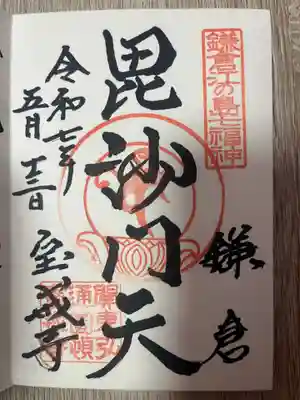 鎌倉江の島七福神
鎌倉
毘沙門天
令和七年
五月十三日
宝戒寺